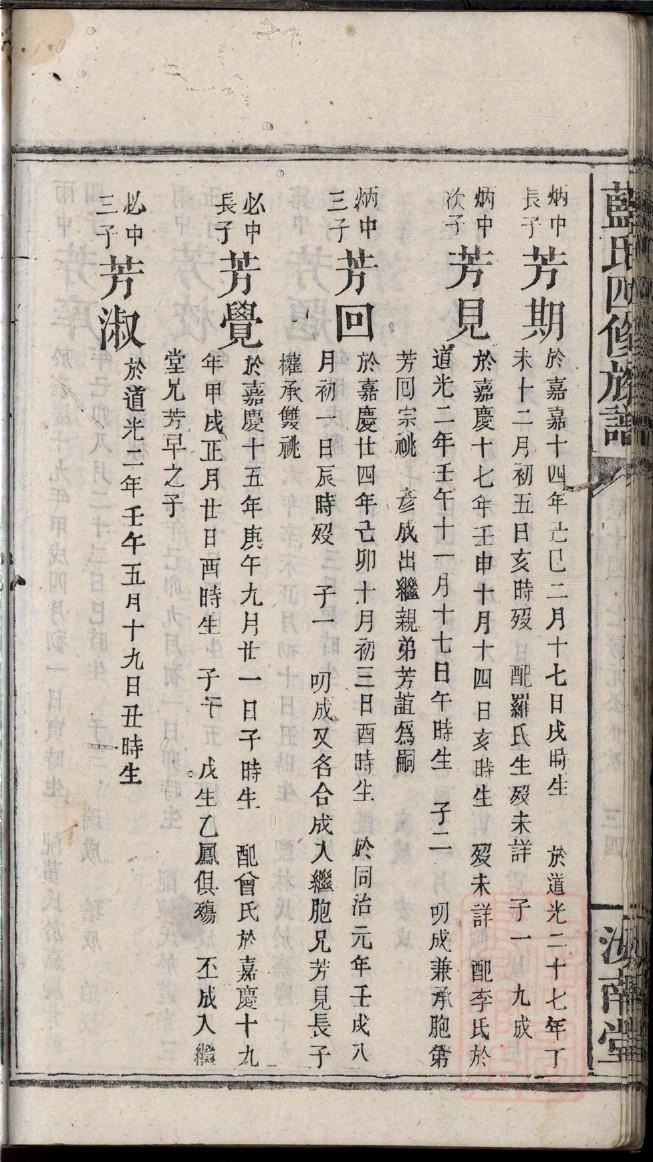 藍氏四修族譜
汝南堂
炳中長子 芳期 於嘉嘉十四年己巳二月十七日戌時生 於道光二十七年丁
未十二月初五日亥時歿 配羅氏生歿未詳 子一 九成
炳中次子 芳見 於嘉慶十七年壬申十月十四日亥時生 歿未詳 配李氏於
道光二年壬午十一月十七日午時生 子二 明成兼承胞弟
芳回宗祧 彦成出繼親弟芳誼爲嗣
炳中三子 芳回 於嘉慶廿四年己卯十月初三日酉時生 於同治元年壬戌八
月初一日辰時歿 子一 明成又名合成入繼胞兄芳見長子
權承雙祧
必中長子 芳覺 於嘉慶十五年庚午九月廿一日子時生 配曾氏於嘉慶十九
年甲戌正月廿日酉時生 子五 戊生乙鳳俱殤 丕成入繼
堂兄芳早之子
必中三子 芳淑 於道光二年壬午五月十九日丑時生